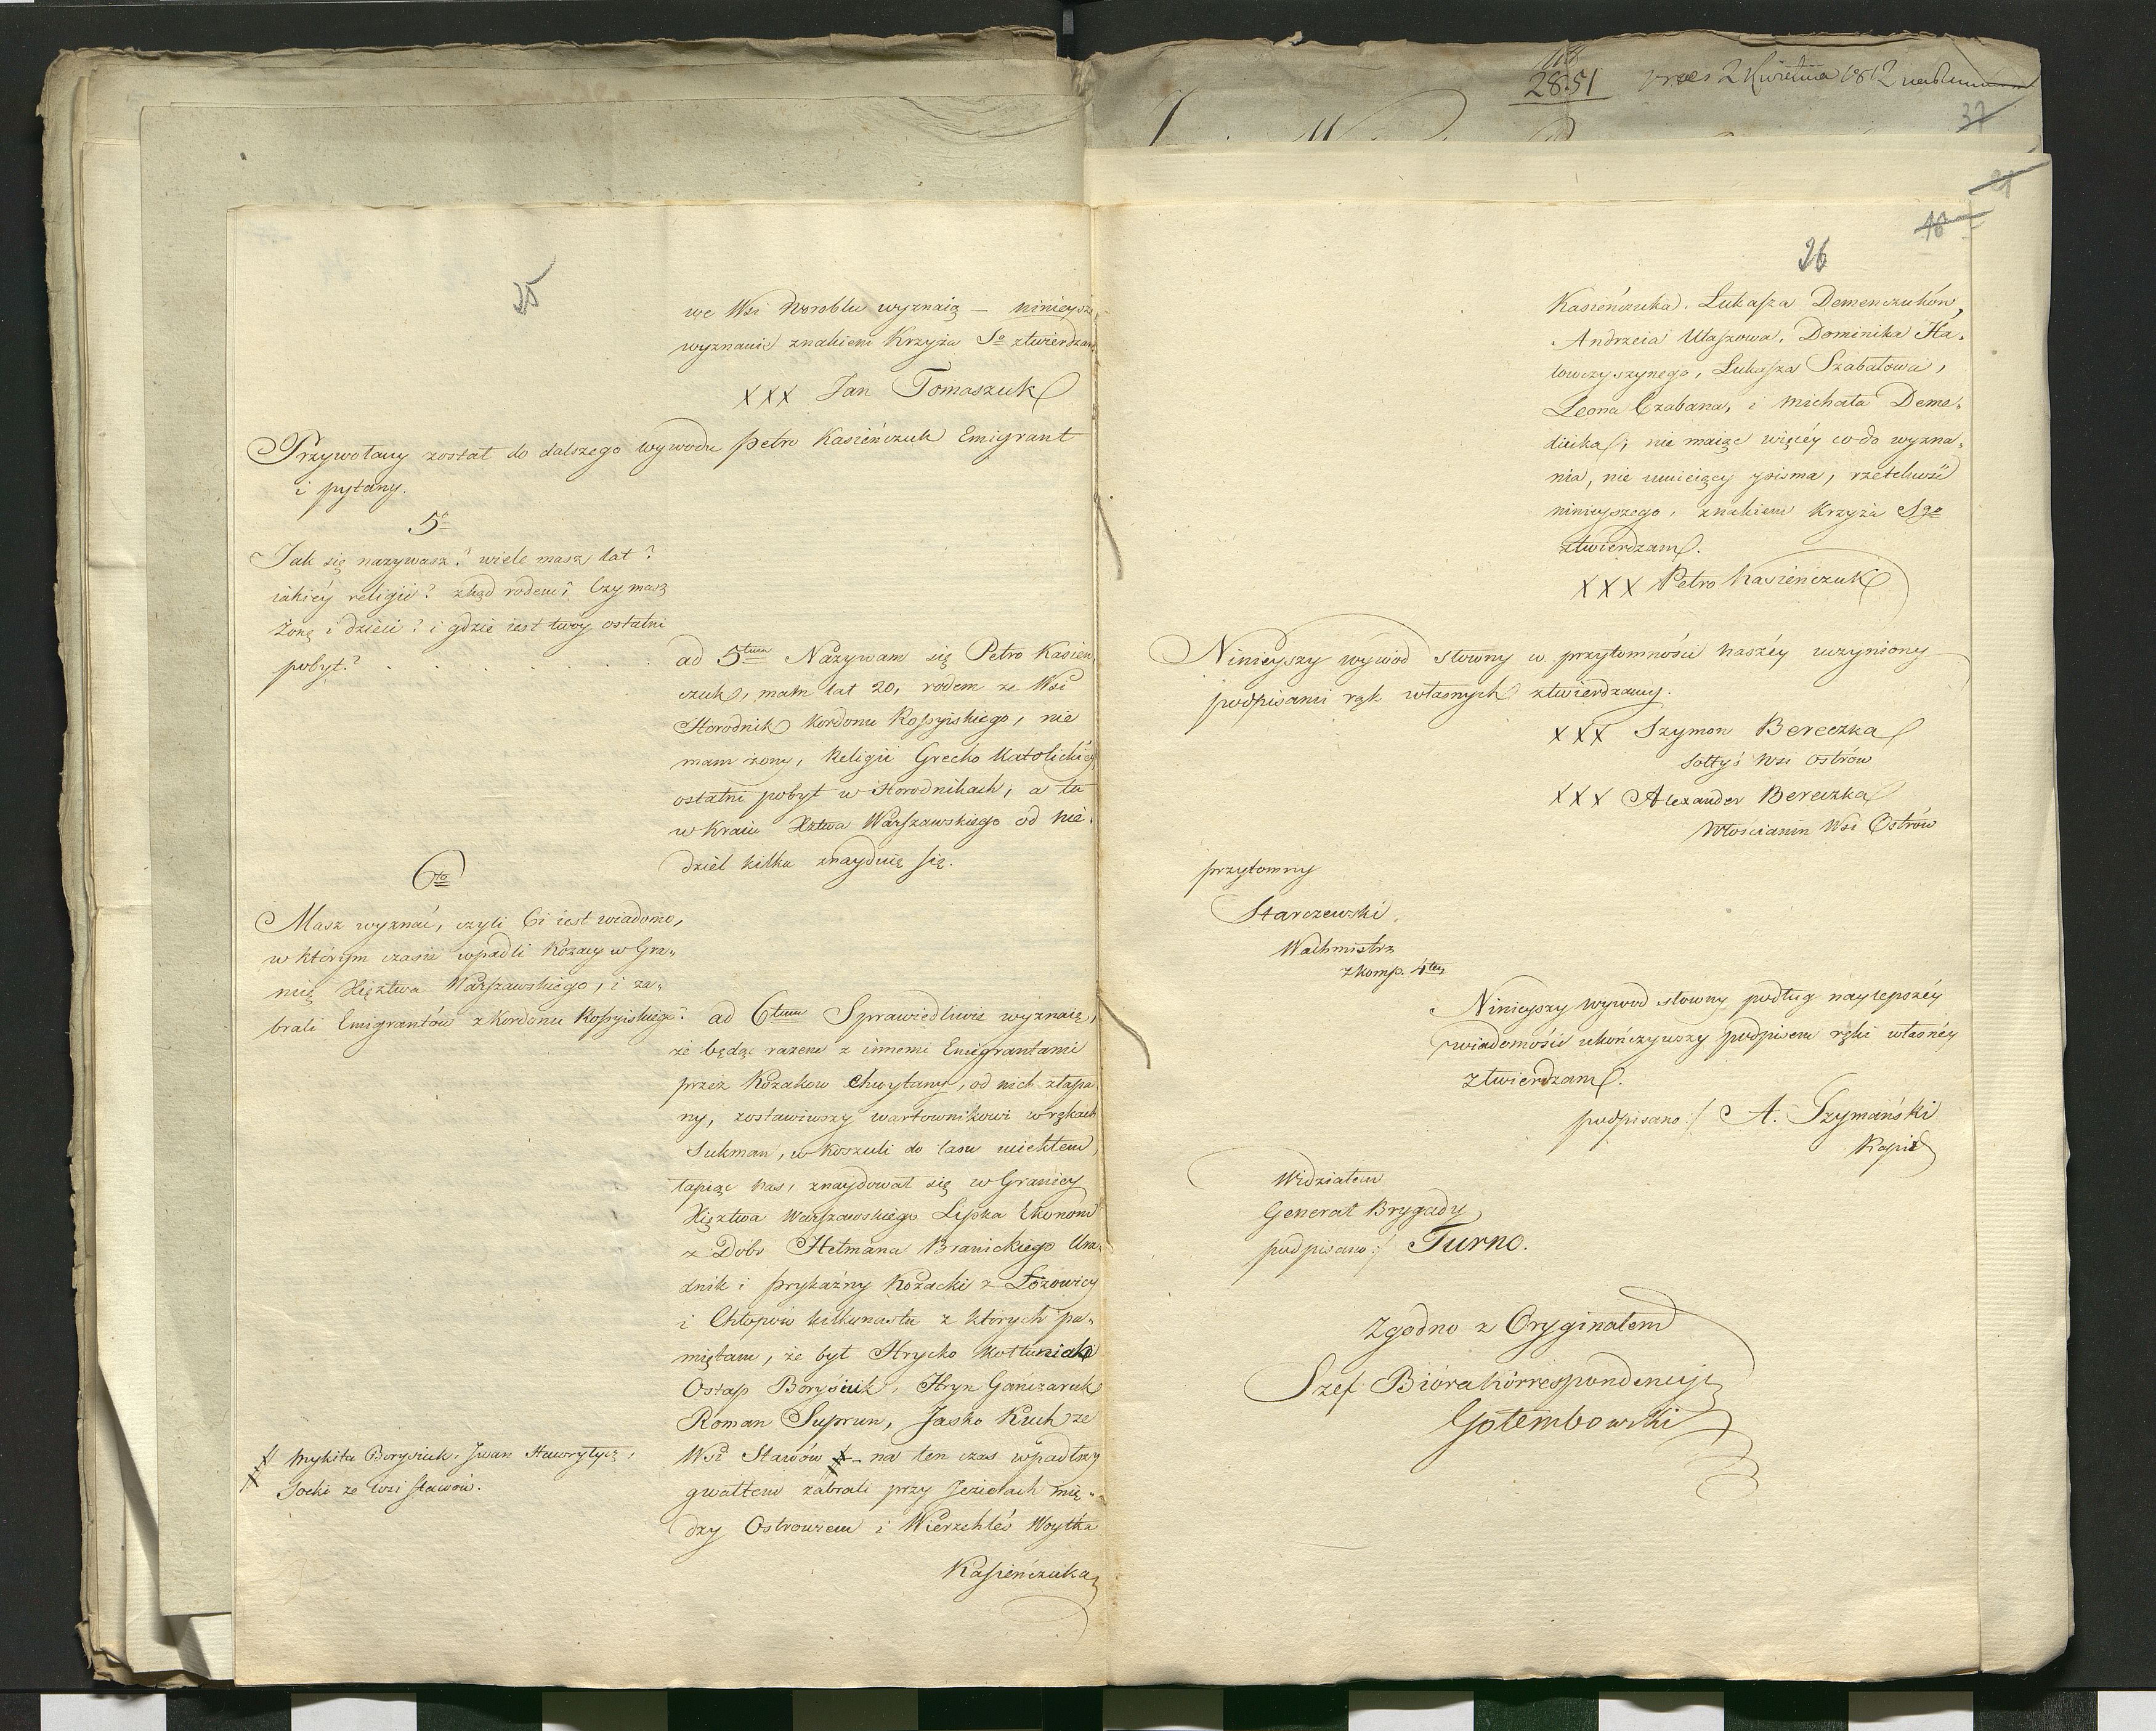 25
we Wsi Woroblu wyznaią — ninieysze
wyznanie znakiem Krzyża So ztwierdzam
XXX Jan Tomaszuk
Przywołany został do dalszego wywodu Petro Kasieńczuk Emigrant
i pytany.
5o
Jak się nazywasz? wiele masz lat?
iakiéy religii? zkąd rodem? Czy masz
żonę i dzieci? i gdzie iest twóy ostatni
pobyt?
ad 5tum Nazywam się Petro Kasień
czuk, mam lat 20, rodem ze Wsi
Horodnik Kordonu Rossyiskiego, nie
mam żony, Religii Grecko Katolickiéy
ostatni pobyt w Horodnikach, a tu
w Kraiu Xztwa Warszawskiego od nie„
dziel kilku znayduię się.
6to
Masz wyznać, czyli Ci iest wiadomo,
w którym czasie wpadli Kozacy w Gra„
nię Xięztwa Warszawskiego, i za„
brali Emigrantów z Kordonu Rossyiskiego?
ad 6tum Sprawiedliwie wyznaię,
że będąc razem z innemi Emigrantami
przez Kozakow chwytany, od nich złapa
ny, zostawiwszy wartownikowi w rękach
Sukman, w Koszuli do lasu uiekłem,
łapiąc nas, znaydował się w Granicy
Xięztwa Warszawskiego Lipka Ekonom
z Dóbr Hetmana Branickiego Ura„
dnik i prykaźny Kozacki z Łozowicy
i Chłopów kilkunastu z których pa„
miętam, że był Hrycko Kotłuniak
Ostap Borysiuk, Hryn Gańczaruk
Roman Suprun, Jasko Kuch ze
Wsi Stawów # — na ten czas wpadłszy
gwałtem zabrali przy Jeziorach mię„
dzy Ostrowiem i Wierzchleś Woytka
Kasieńczuka
# Mykita Borysiuk, Jwan Haworytycz,
Socki ze Wsi Stawów.
2851 przes 2 Kwietnia 1812
37
21
18
26
Kasieńczuka, Łukasza Demenczuków,
Andrzeia Ułaszowa, Dominika Ha„
łowczyszynego, Łukasza Szabatowa,
Leona Czabana, i Michała Deme„
diuka, nie maiąc więcéy co do wyzna„
nia, nie umieiący pisma, rzetelność
ninieyszego, znakiem Krzyża Sgo
ztwierdzam.
XXX Petro Kasieńczuk
Ninieyszy wywód słowny w przytomności naszéy uczyniony
podpisami rąk własnych ztwierdzamy.
XXX Szymon Bereczka
Sołtys Wsi Ostrów
XXX Alexander Bereczka
Włościanin Wsi Ostrów
przytomny
Starczewski
Wachmistrz
z komp. 4téy
Ninieyszy wywod słowny podług naylepszéy
wiadomości ukończywszy podpisem ręki własnéy
ztwierdzam.
podpisano:/ A. Szymański
Kapit
Widziałem
Generał Brygady
podpisano:/ Turno.
Zgodno z Oryginałem
Szef Bióra Korrespondencyi
Gołembowski